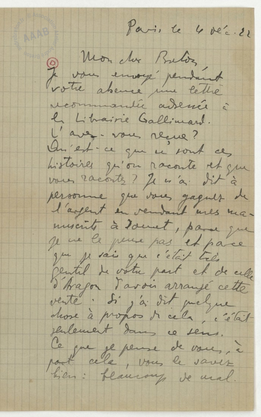 Paris le 4 déc. 22
Mon cher Breton,
Je vous ai envoyé pendant
votre absence une lettre
recommandée adressée à
la Librairie Gallimard.
L'avez-vous reçue?
Qu'est-ce que ce sont ces
histoires qu'on raconte et que
vous racontez? Je n'ai dit à
personne que vous gagnez de
l'argent en vendant mes ma-
nuscrits à Doucet, parce que
je ne le pense pas et parce
que je sais que c'était très
gentil de votre part et de celle
d'Aragon d'avoir arrangé cette
vente. Si j'ai dit quelque
chose à propos de cela, c'était
seulement dans ce sens.
Ce que je pense de vous, à
part cela, vous le savez
bien: beaucoup de mal